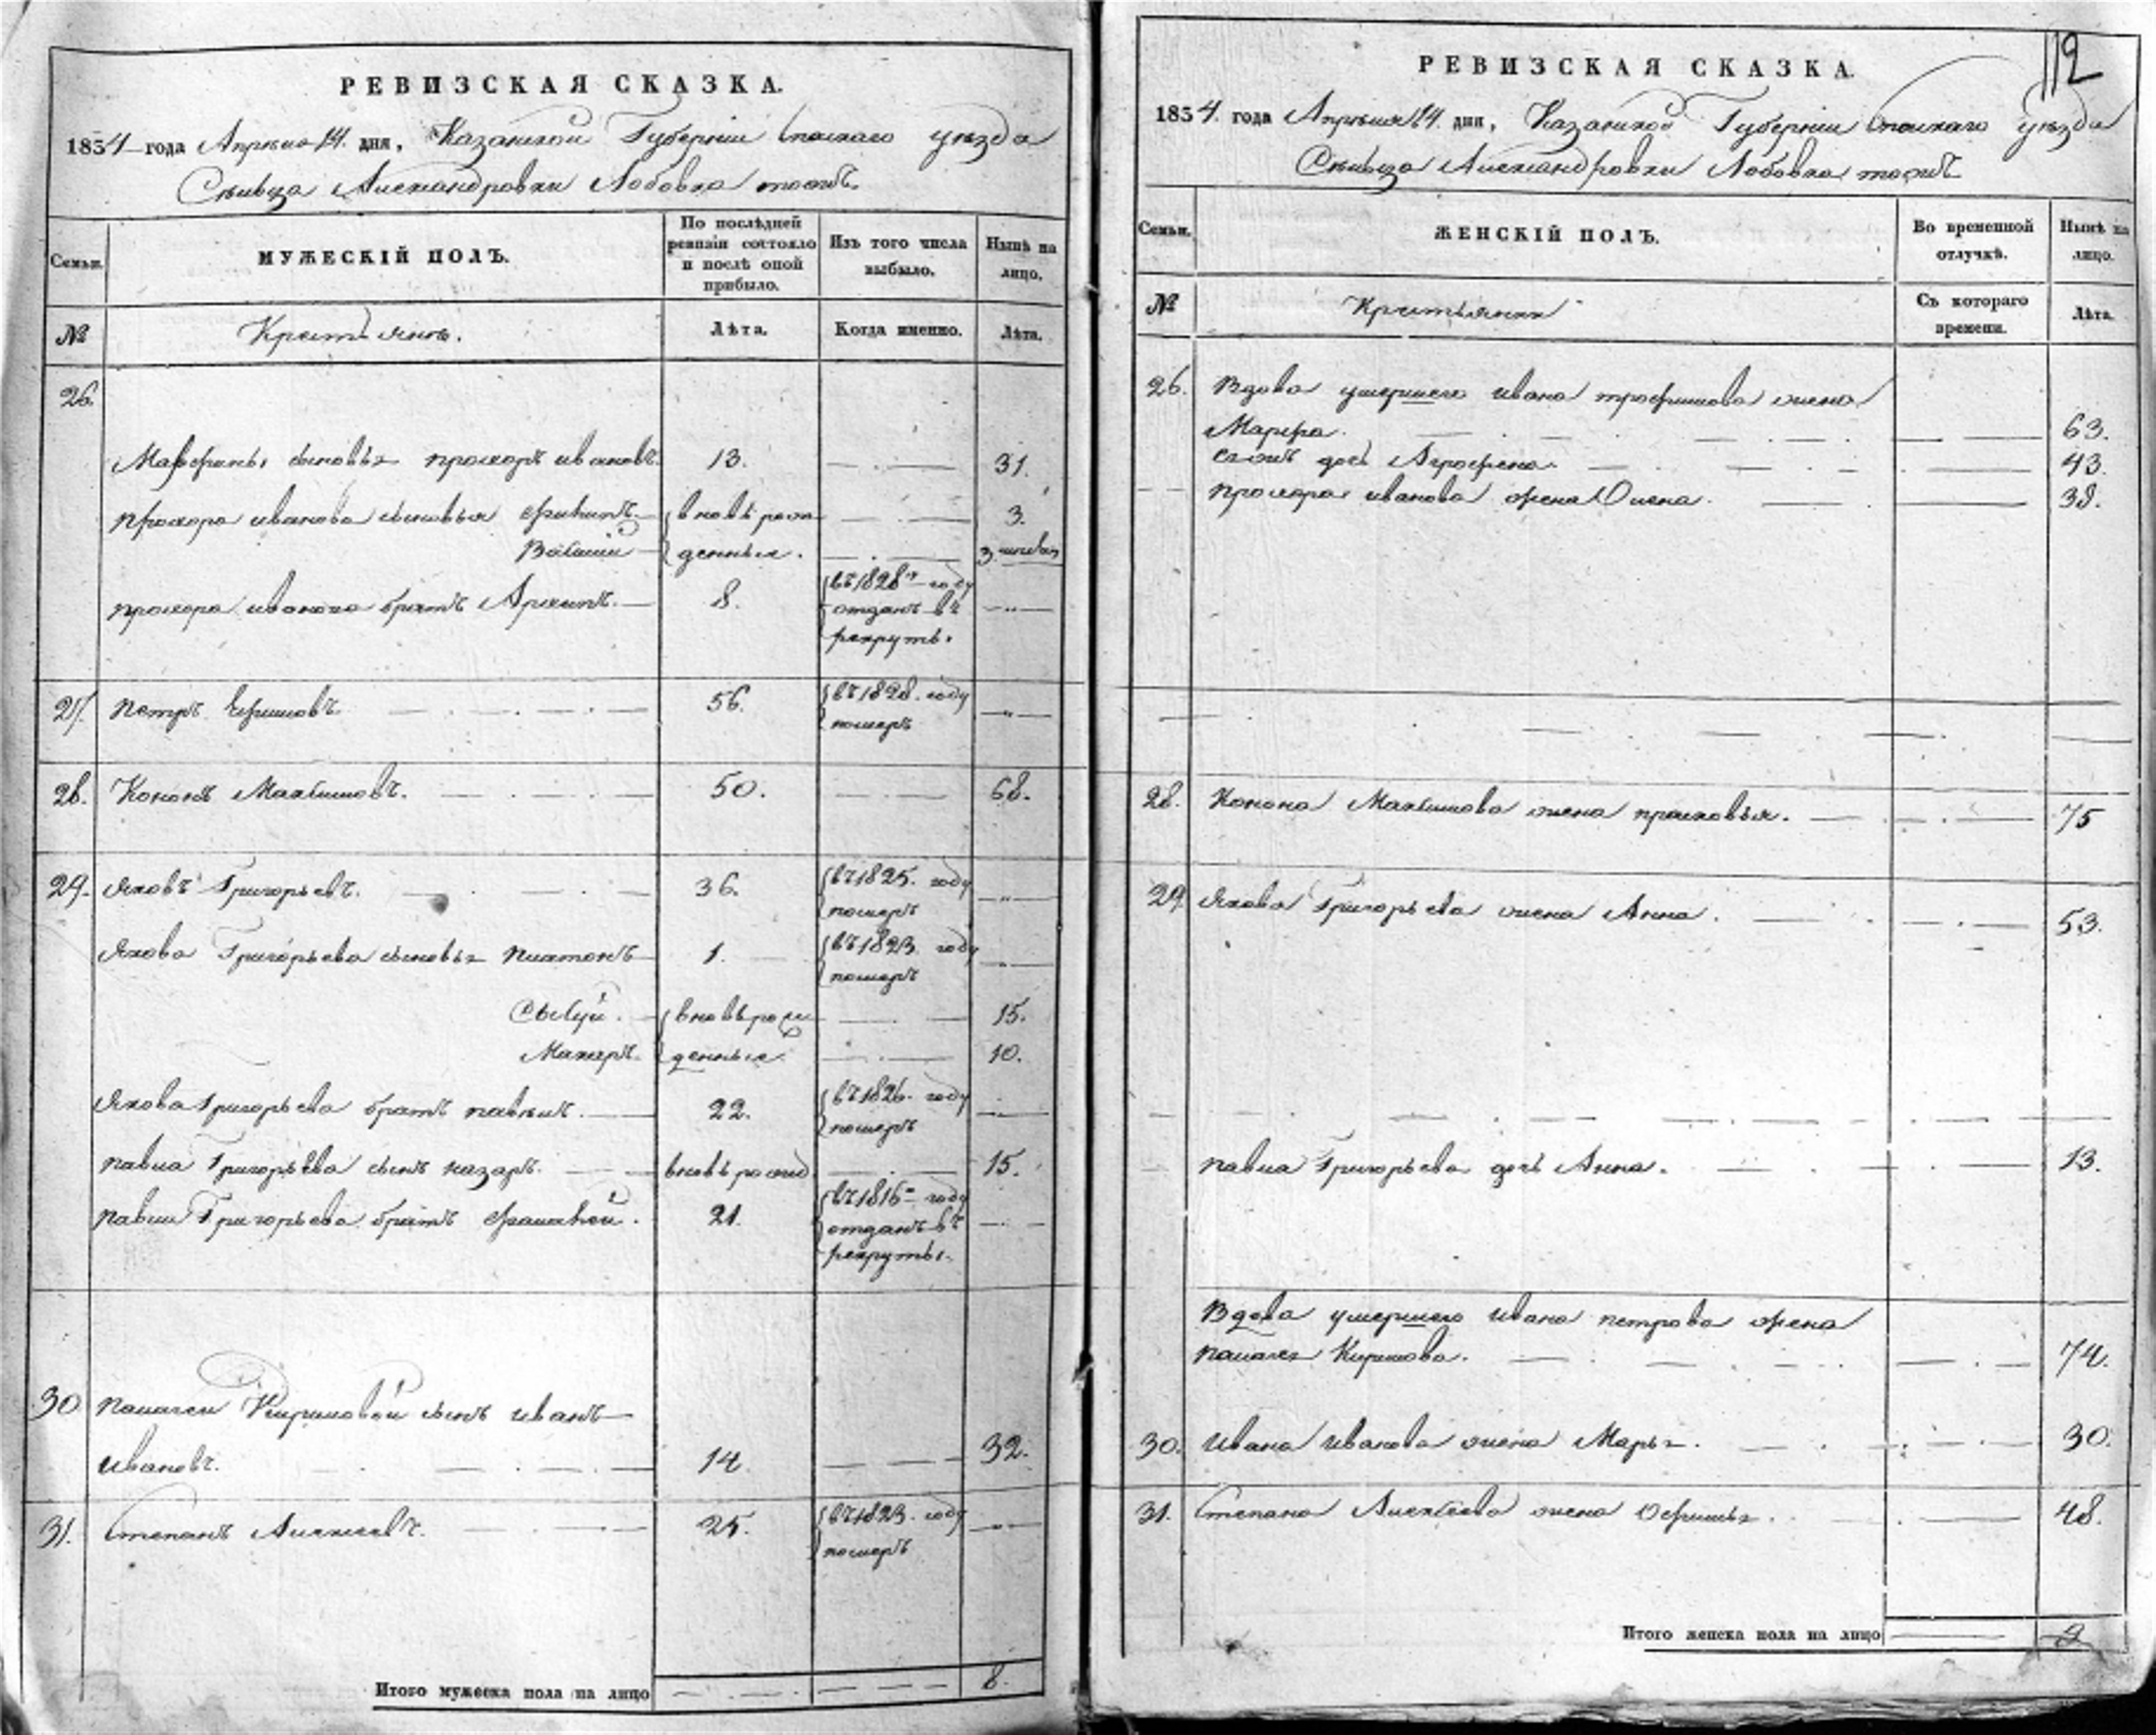 РЕВИЗСКАЯ СКАЗКА.
1834 года Апреля 14. дня, Казанской Губернiи Спаскаго уезда
Сельца Александровки Лобовка тожъ
Семьи.
МУЖЕСКІЙ ПОЛЪ.
По послѣдней ревизіи состояло и послѣ оной прибыло.
Изъ того числа выбыло.
Нынѣ на лицо.
№
Крестьянъ.
Лѣта.
Когда именно.
Лѣта.
26.
сыновья прохоръ ивановъ. 13. 31.
прохора иванова сыновья Филипъ вновь рож 3.
Василiй денныя. 3 недель
прохора иванова братъ Архипъ. 8. въ 1828м году
отданъ въ
рекруты.
27. петръ Ефимовъ 56. въ 1828. году
померъ
28. Кононъ Максимовъ. 50. 68.
29. Яковъ Григорьевъ. 36. въ 1825. году
померъ
Якова Григорьева сыновья платонъ 1. въ 1823 году
померъ
вновь рож 15.
Макаръ денныя. 10.
Якова Григорьева братъ павелъ. 22. въ 1826. году
померъ
павла Григорьева сынъ назаръ. вновь рожд 15.
павла Григорьева братъ Фалалей. 21. въ 1816м году
отданъ въ
рекруты.
30 палагеи Кириловой сынъ иванъ
ивановъ. 14. 32.
31. Степанъ Алексеевъ. 25. въ 1823. году
померъ
Итого мужеска пола на лицо 8.
112
РЕВИЗСКАЯ СКАЗКА.
1834. года Апреля 14. дня, Казанской Губернiи Спаскаго уезда
Сельца Александровки Лобовка тожъ
Семьи.
ЖЕНСКІЙ ПОЛЪ.
Во временной отлучкѣ.
Нынѣ на лицо.
№
Крестьянки
Съ котораго времени.
Лѣта.
26. Вдова умершего ивана трофимова жена
Марфа. 63.
дочь Агрофена. 43.
прохора иванова жена Олена. 38.
28. Конона Максимова жена прасковья. 75
29. Якова Григорьева жена Анна. 53.
павла Григорьева дочь Анна. 13.
Вдова умершего ивана петрова жена
палагея Кирилова. 74.
30. Ивана Иванова жена Марья. 30.
31. Степана Алексеева жена Офимья. 48.
Итого женска пола на лицо 9